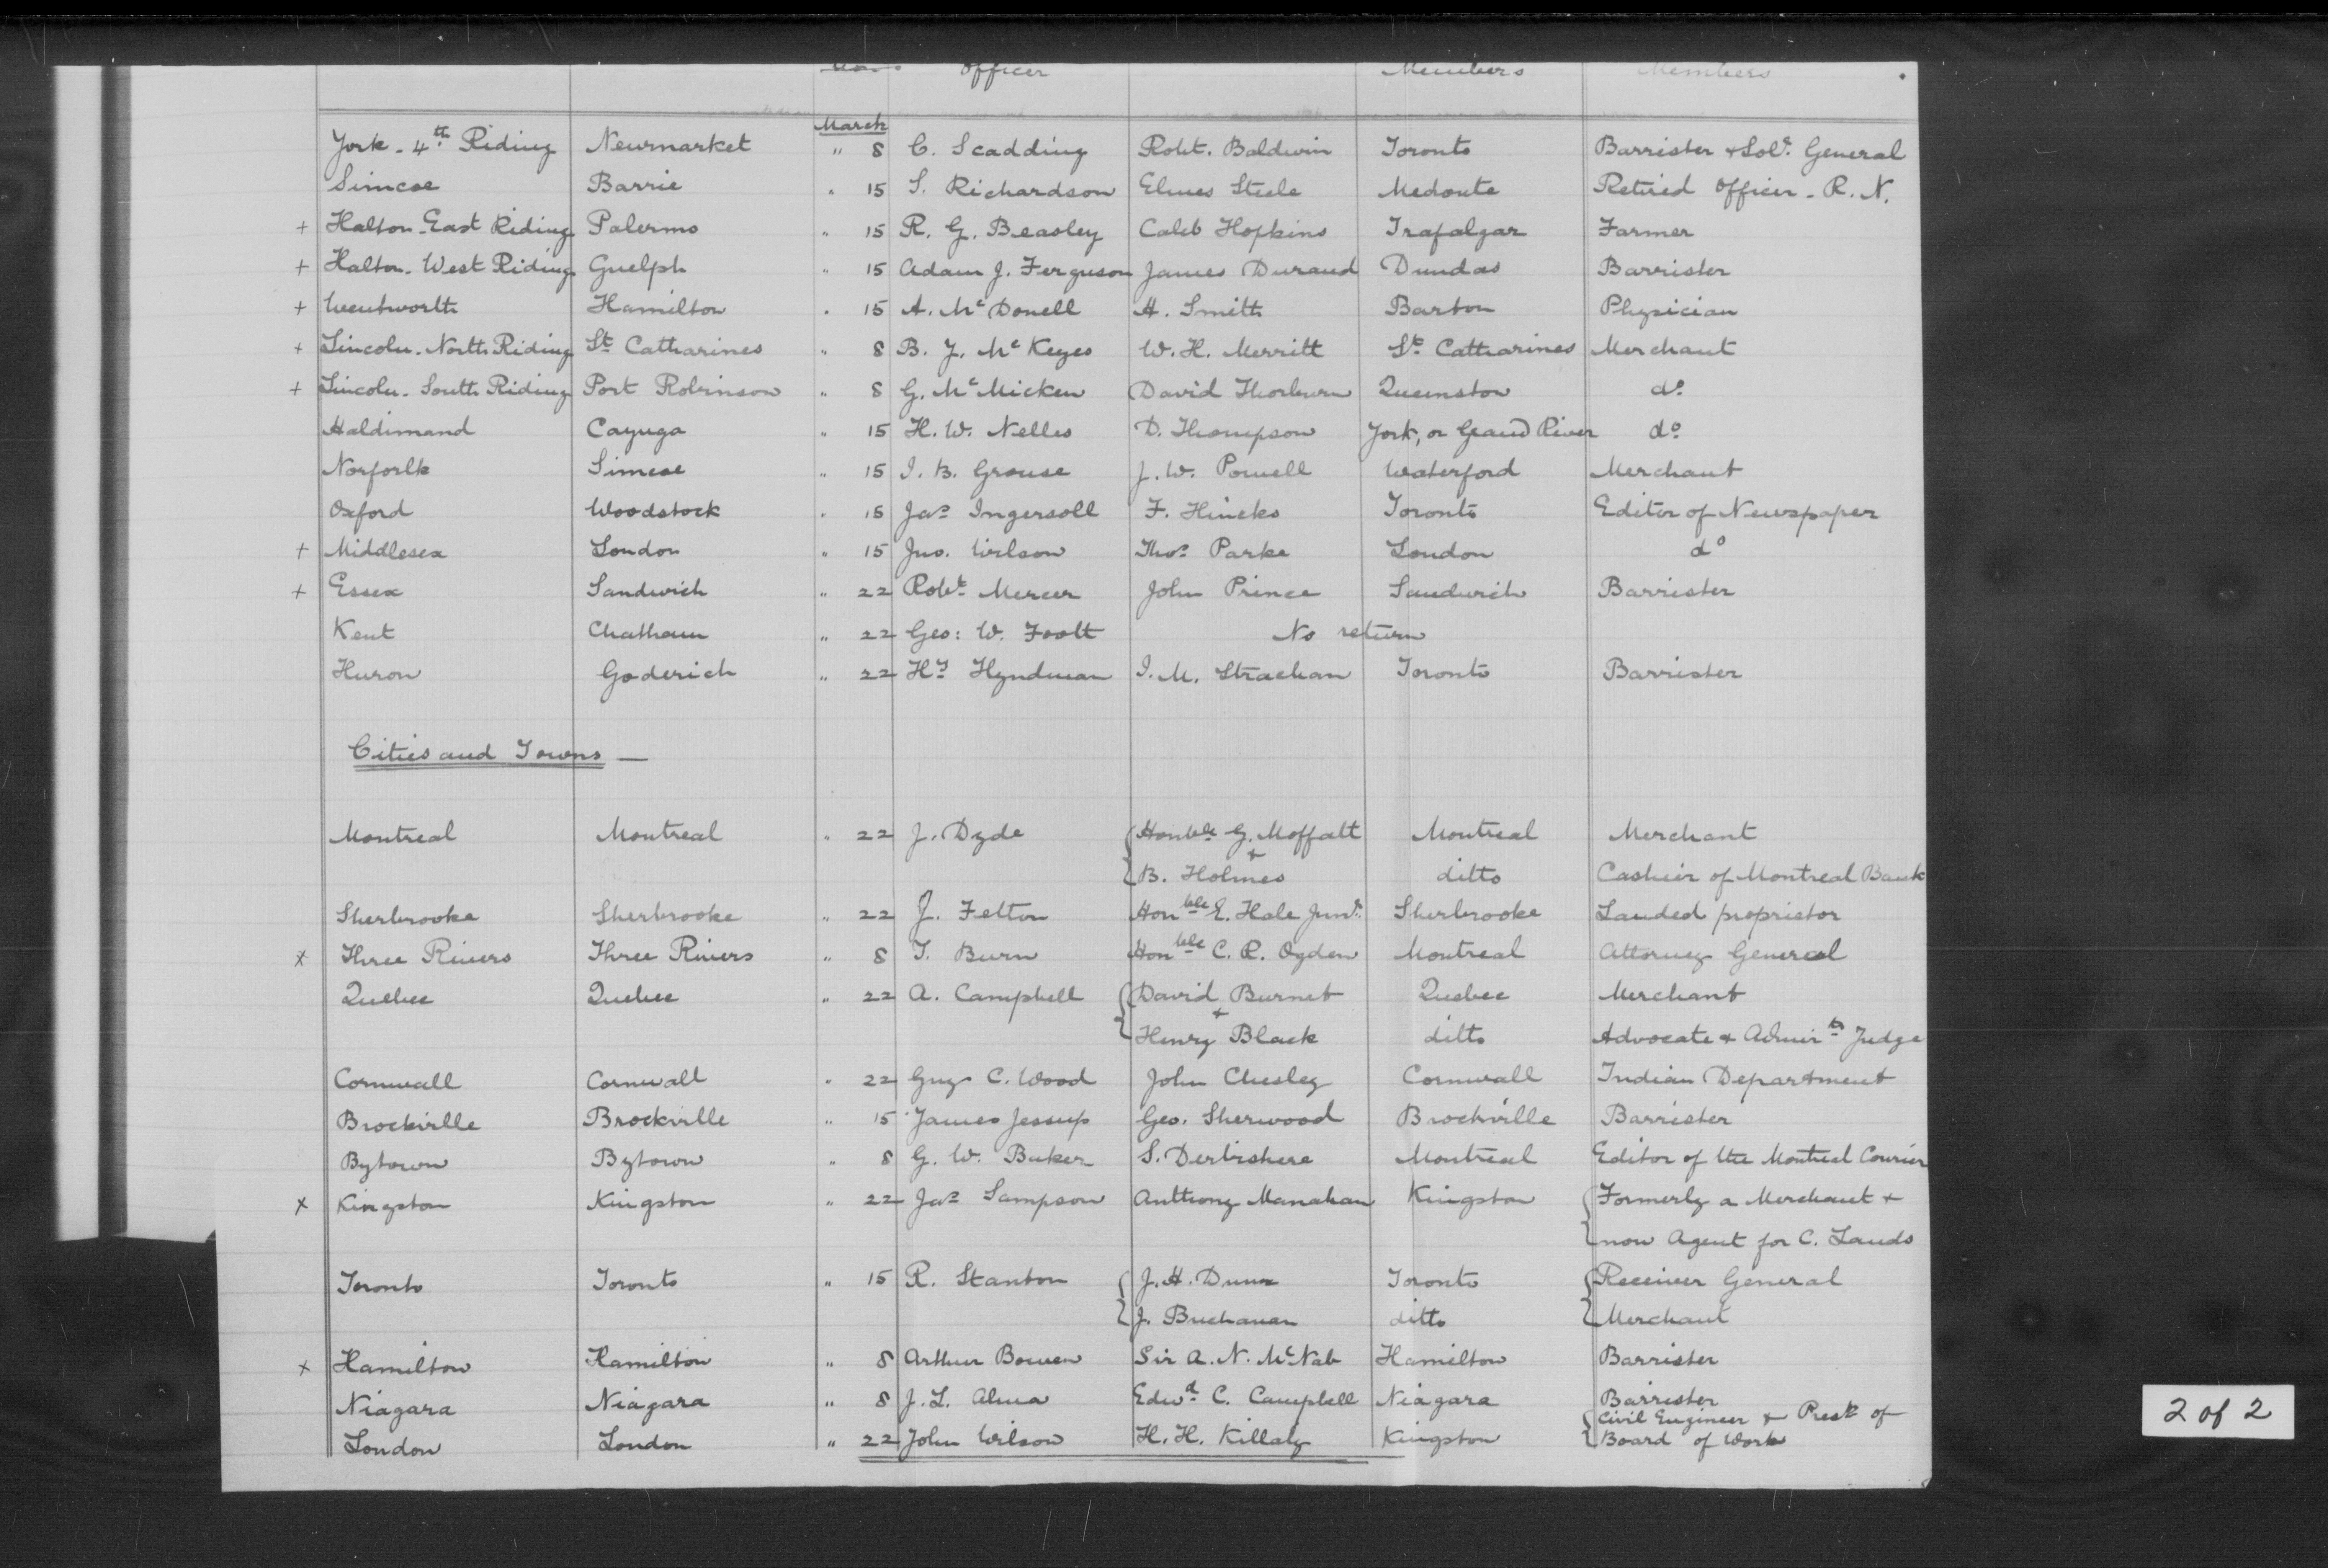 Officer Members Members
March
York - 4th Riding Newmarket " 8 C. Scadding Robt. Baldwin Toronto Barrister & Solr. General
Simcoe Barrie " 15 S. Richardson Elmes Steele Medonte Retired Officer - R. N.
+ Halton - East Riding Palermo " 15 R. G. Beasley Caleb Hopkins Trafalgar Farmer
+ Halton - West Riding Guelph " 15 Adam J. Ferguson James Durand Dundas Barrister
+ Wentworth Hamilton " 15 A. McDonell H. Smith Barton Physician
+ Lincoln - North Riding St Catharines " 8 B. Y. McKeyes W. H. Merritt St. Catharines Merchant
+ Lincoln - South Riding Port Robinson " 8 G. McMicken David Thorburn Queenston do
Haldimand Cayuga " 15 H. W. Nelles D. Thompson York, or Grand River do
Norforlk Simcoe " 15 I. B. Grouse J. W. Powell Waterford Merchant
Oxford Woodstock " 15 Jas Ingersoll F. Hincks Toronto Editor of Newspaper
+ Middlesex London " 15 Jno. Wilson Thos Parke London do
+ Essex Sandwich " 22 Robt Mercer John Prince Sandwich Barrister
Kent Chatham " 22 Geo: W. Foott No return
Huron Goderich " 22 Hy Hyndman I. M. Strachan Toronto Barrister
Cities and Towns —
Montreal Montreal " 22 J. Dyde { Honble G. Moffatt Montreal Merchant
&
B. Holmes ditto Cashier of Montreal Bank
Sherbrooke Sherbrooke " 22 J. Felton Honble E. Hale Junr. Sherbrooke Landed proprietor
x Three Rivers Three Rivers " 8 I. Burn Honble C. R. Ogden Montreal Attorney General
Quebec Quebec " 22 A. Campbell { David Burnet Quebec Merchant
&
Henry Black ditto Advocate & Admirty Judge
Cornwall Cornwall " 22 Guy C. Wood John Chesley Cornwall Indian Department
Brockville Brockville " 15 James Jessup Geo. Sherwood Brockville Barrister
Bytown Bytown " 8 G. W. Baker S. Derbishere Montreal Editor of the Montreal Courier
x Kingston Kingston " 22 Jas Sampson Anthony Manahan Kingston { Formerly a Merchant &
now Agent for C. Lands
Toronto Toronto " 15 R. Stanton { J. H. Dunn Toronto { Receiver General
J. Buchanan ditto Merchant
x Hamilton Hamilton " 8 Arthur Bowen Sir A. N. McNab Hamilton Barrister
Niagara Niagara " 8 J. L. Alma Edwd C. Campbell Niagara Barrister
{ Civil Engineer & Prest of
London London " 22 John Wilson H. H. Killaly Kingston Board of Works
2 of 2